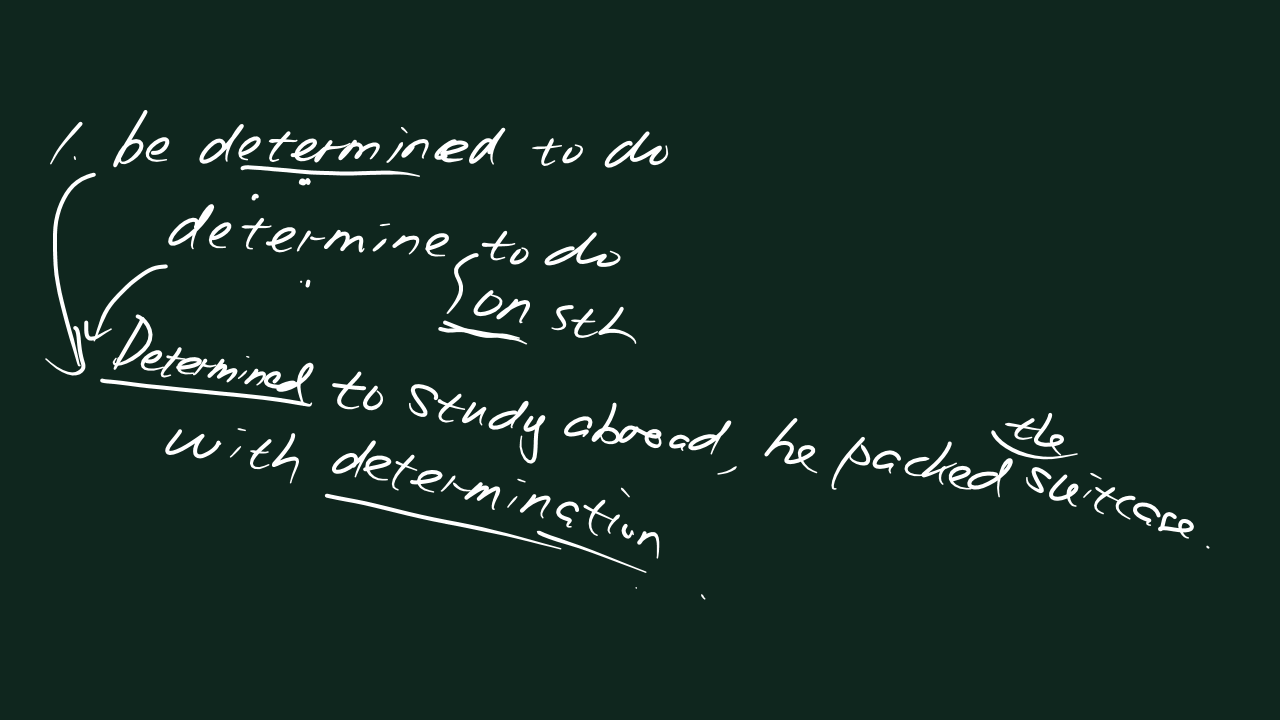 1. be determined to do
determine to do
on sth
Determined to study abroad, he packed the suitcase.
with determination